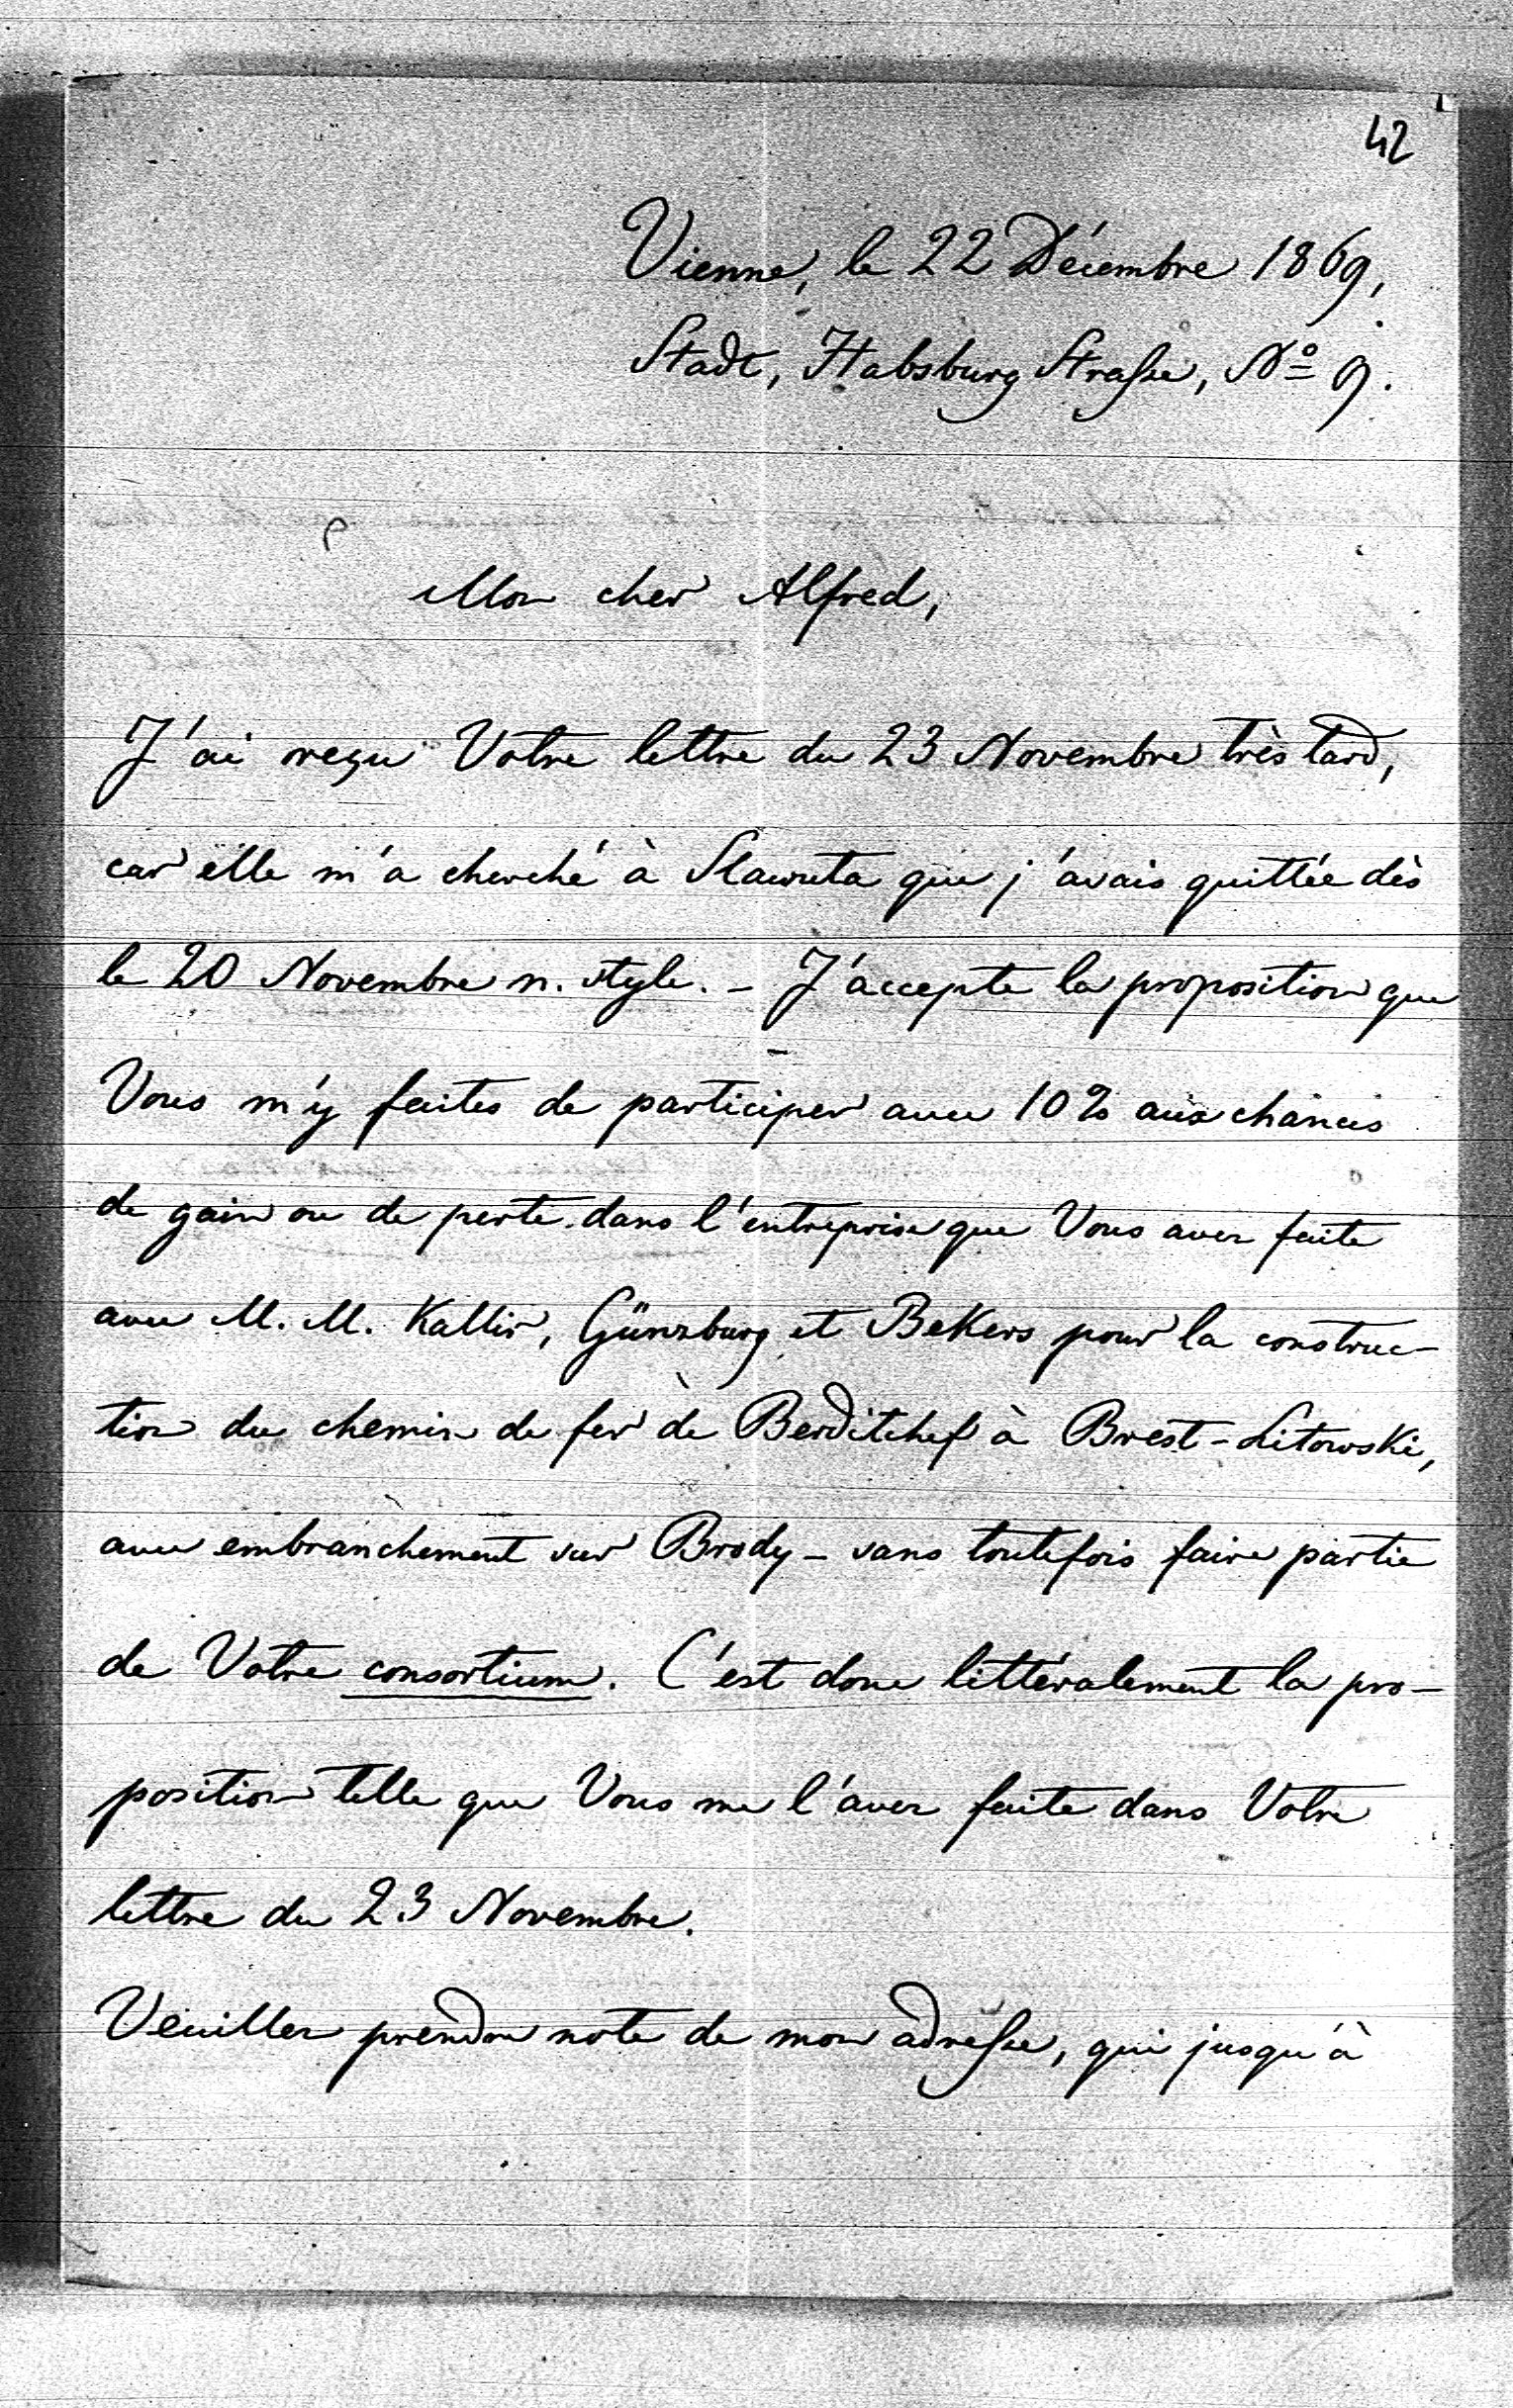 42
Vienne, le 22 Décembre 1869,
Stadt, Habsburg Straße, Nº 9.
Mon cher Alfred,
J'ai reçu Votre lettre du 23 Novembre très tard,
car elle m'a cherché à Slawuta que j'avais quittée dès
le 20 Novembre n. style. - J'accepte la proposition que
Vous m'y faites de participer avec 10% aux chances
de gain ou de perte dans l'entreprise que Vous avez faite
avec M. M. Kallir, Günzburg et Bekers pour la construc-
tion du chemin de fer de Berditchef à Brest-Litowski,
avec embranchement sur Brody - sans toutefois faire partie
de Votre consortium. C'est donc littéralement la pro-
position telle que Vous me l'avez faite dans Votre
lettre du 23 Novembre.
Veuillez prendre note de mon adreße, qui jusqu'à